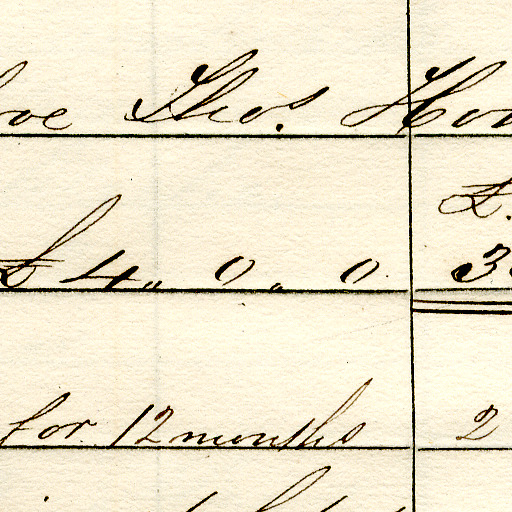 Thos. Hor
£.
£ 4 „ 0 „ 0 3
for 12 months 2